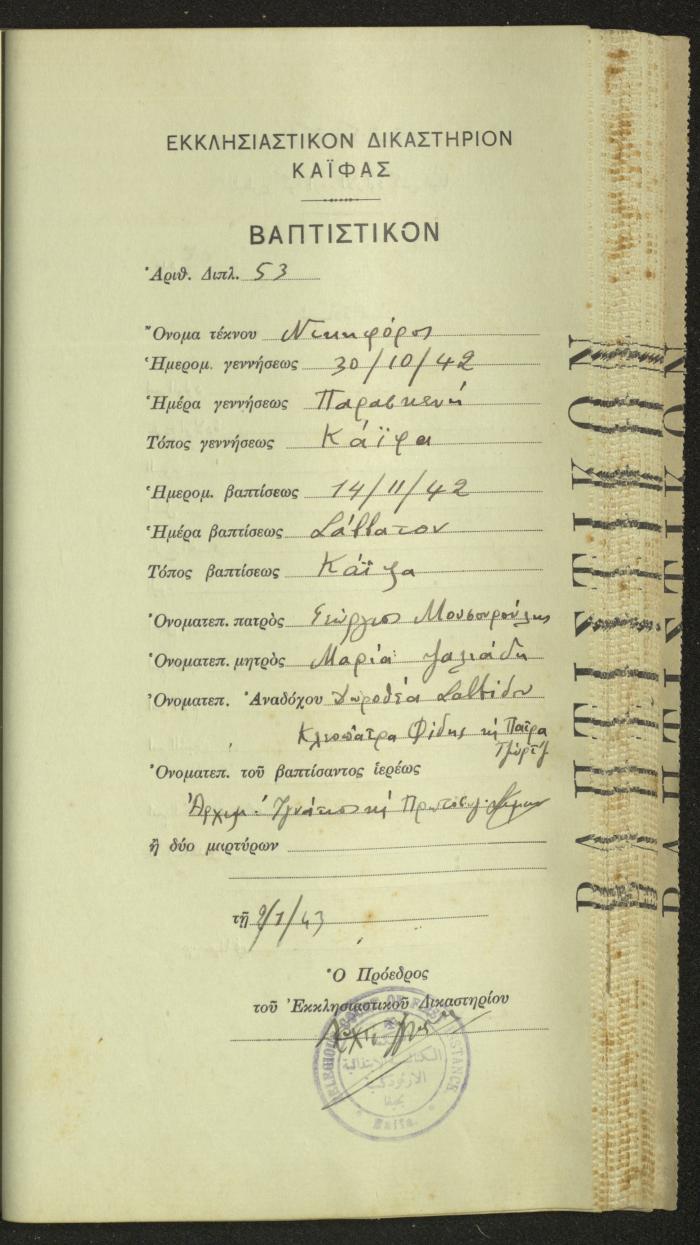 ΕΚΚΛΗΣΙΑΣΤΙΚΟΝ ΔΙΚΑΣΤΗΡΙΟΝ
ΚΑΪΦΑΣ
ΒΑΠΤΙΣΤΙΚΟΝ
Ἀριθ. Διπλ. 53
Ὄνομα τέκνου Νικηφόρος
Ἡμερομ. γεννήσεως 30/10/42
Ἡμέρα γεννήσεως Παρασκευή
Τόπος γεννήσεως Κάϊφα
Ἡμερομ. βαπτίσεως 14/11/42
Ἡμέρα βαπτίσεως Σάββατον
Τόπος βαπτίσεως Κάϊφα
Ὀνοματεπ. πατρὸς Γεώργιος Μουσουρούλης
Ὀνοματεπ. μητρὸς Μαρία
Ὀνοματεπ. Ἀναδόχου Δωροθέα Σαββίδου
Κλεοπάτρα Φίδης κὴ Πάτρα
Τζώρτζ
Ὀνοματεπ. τοῦ βαπτίσαντος ἱερέως
Ἀρχιμ. Ἰγνάτιος κὴ
ἢ δύο μαρτύρων
τῇ 9/1/43
Ὁ Πρόεδρος
τοῦ Ἐκκλησιαστικοῦ Δικαστηρίου
RELIGIOUS COURT OF FIRST INSTANCE
الارثوذكسية
بحيفا
Haifa.
ΒΑΠΤΙΣΤΙΚΟΝ
ΒΑΠΤΙΣΤΙΚΟΝ